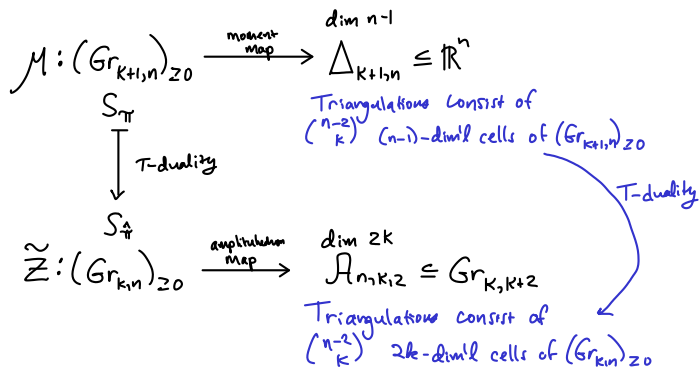 dim n-1
μ : (Gr_{k+1,n})_{≥0} —moment map→ Δ_{k+1,n} ⊆ ℝ^n
S_π
Triangulations consist of
\binom{n-2}{k} (n-1)-dim'l cells of (Gr_{k+1,n})_{≥0}
T-duality
T-duality
S_{\hat{π}}
dim 2k
\tilde{Z} : (Gr_{k,n})_{≥0} —amplituhedron map→ A_{n,k,2} ⊆ Gr_{k,k+2}
Triangulations consist of
\binom{n-2}{k} 2k-dim'l cells of (Gr_{k,n})_{≥0}